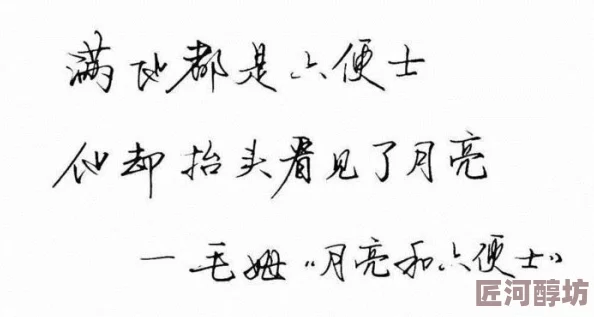 满地都是六便士
他却抬头看见了月亮
一毛姆“月亮和六便士”
匠河醇坊